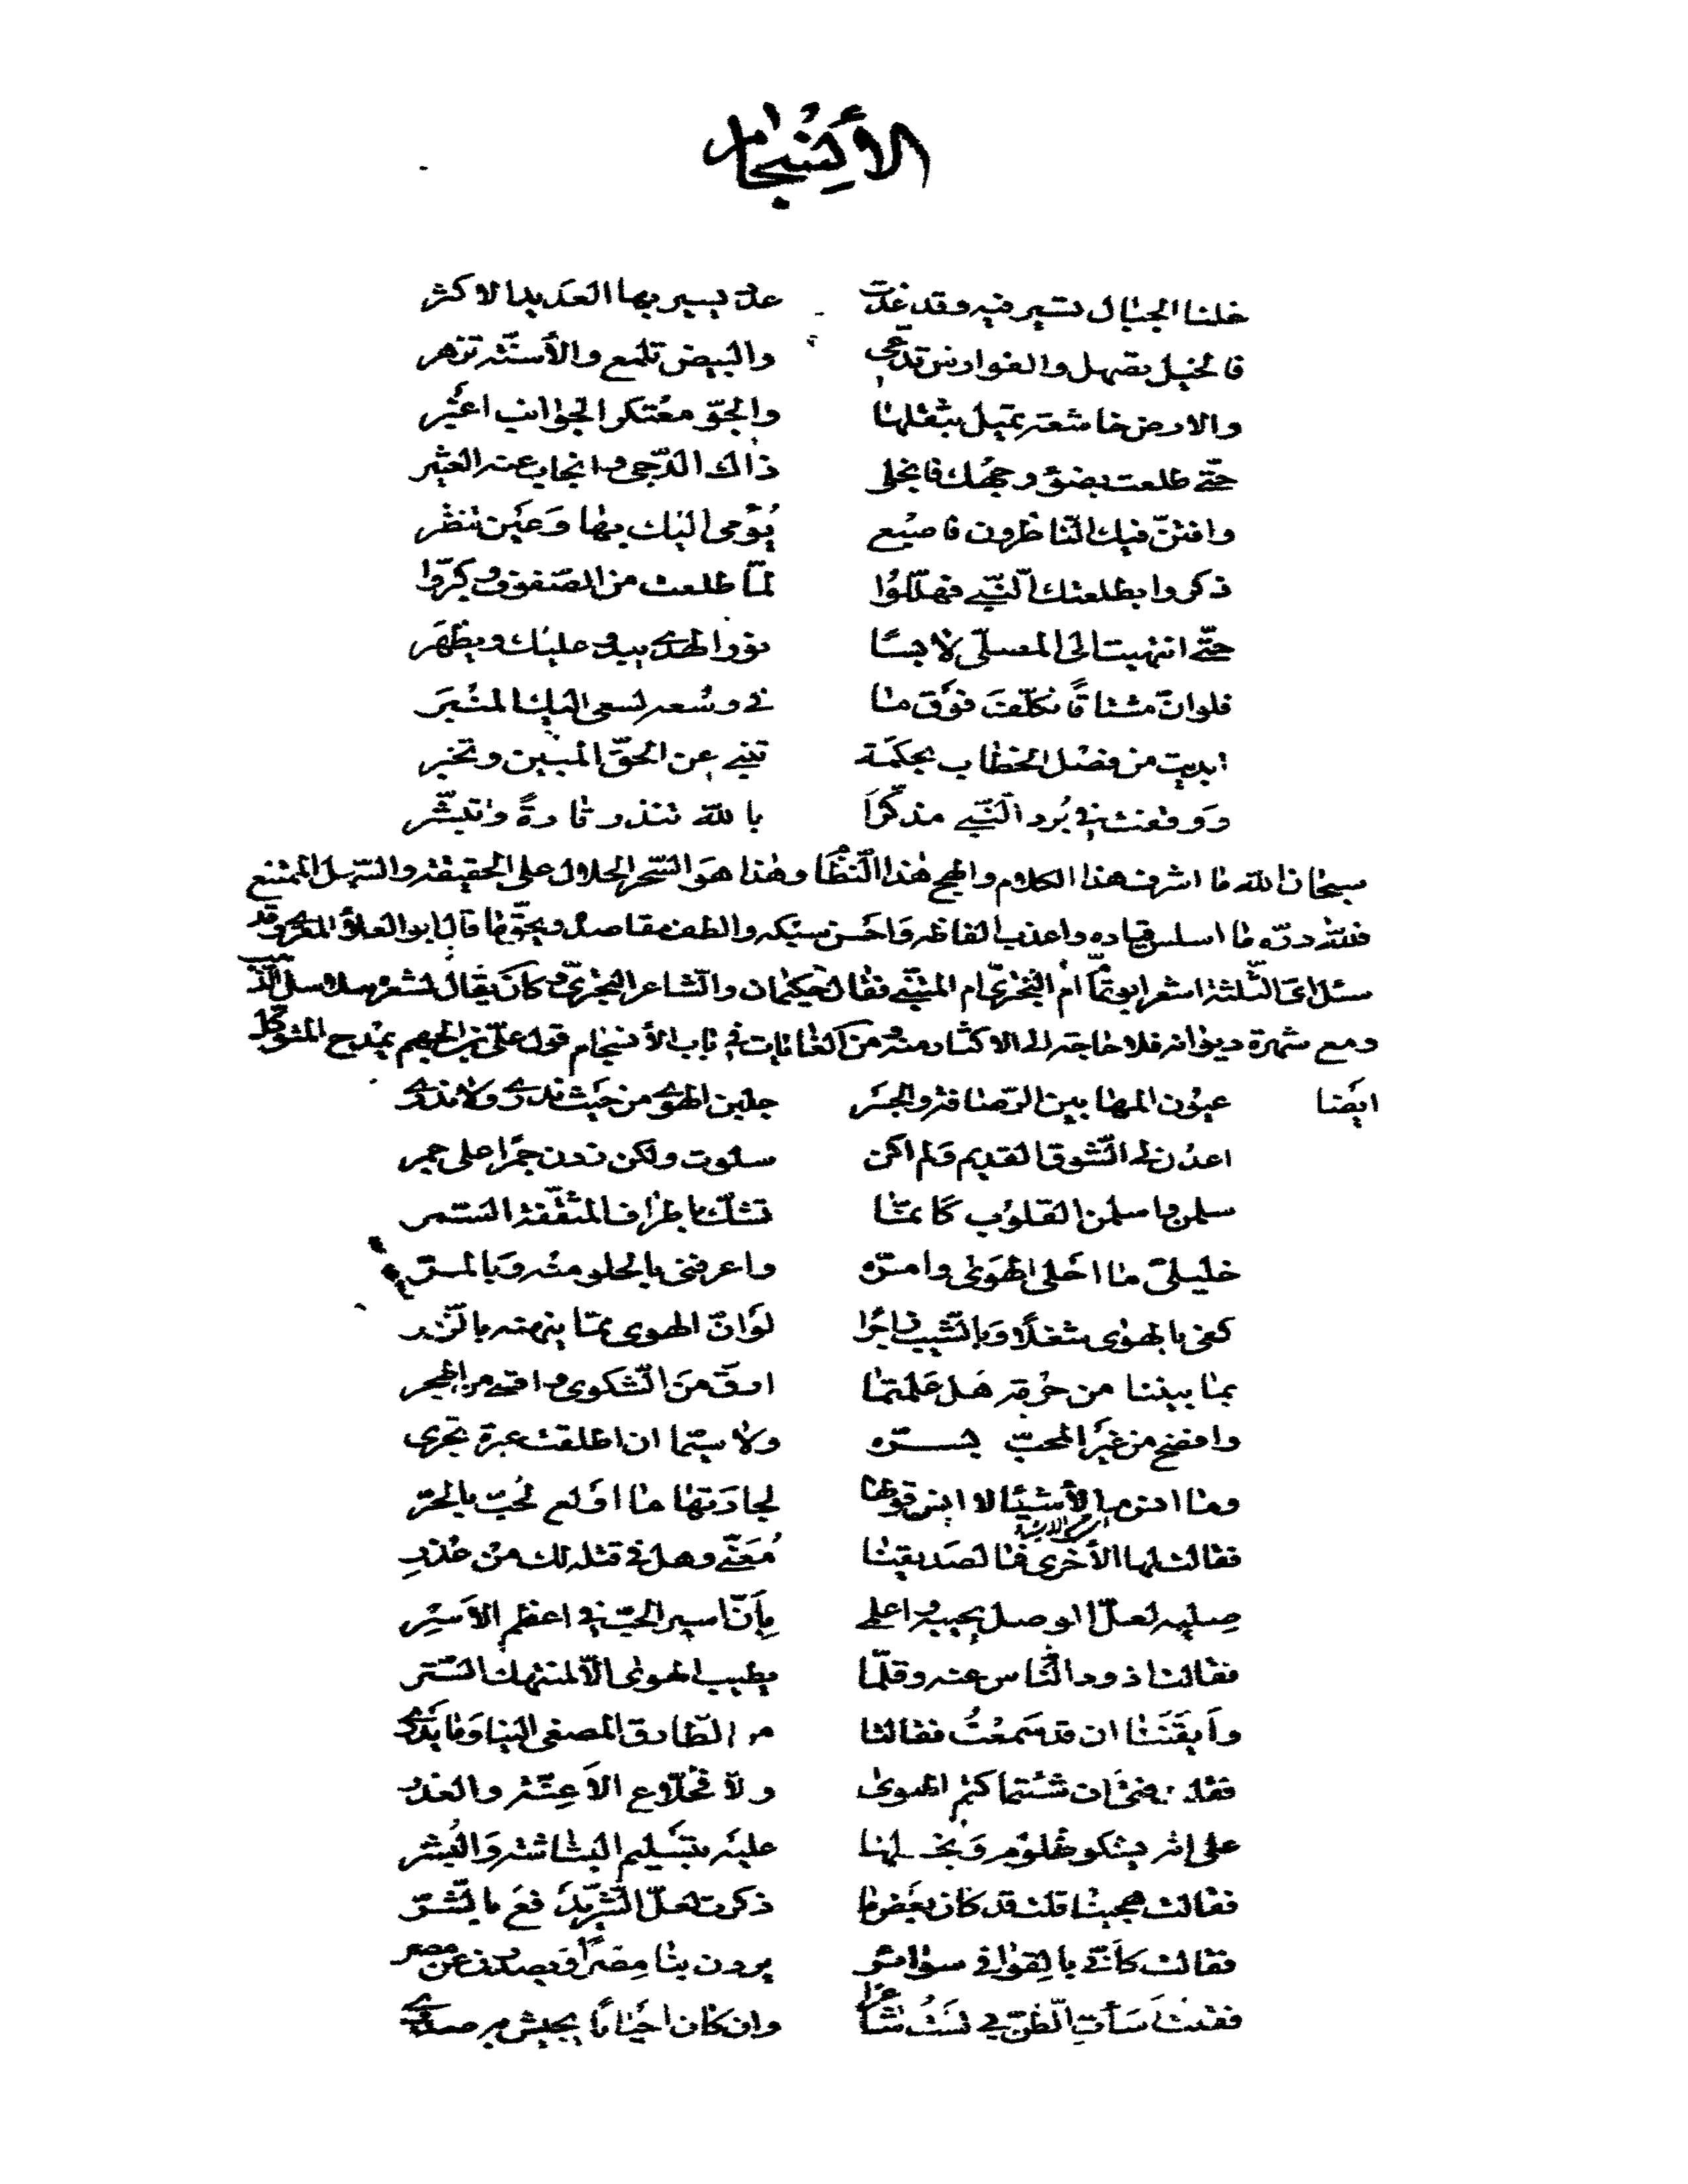 الأنسجام
خلنا الجبال تسير فيه وقد غدت عدد يسير بها العديد الاكثر
فالخيل تصهل والفوارس تدّعي والبيض تلمع والأسنّة تزهر
والارض خاشعة تميل بثقلها والجوّ معتكر الجوانب اغبر
حتّى طلعت بضوء وجهك فانجلى ذاك الدّجى وانجاب عنه العثير
وافتنّ فيك النّاظرون فاصبع يُؤمى اليك بها وَعَين تنظر
ذكروا بطلعتك النّبي فهلّلوا لمّا طلعت من الصّفوف وكبّروا
حتّى انتهيت الى المصلّى لابسًا نور الهدى يبدو عليك ويظهر
فلو انّ مشتاقًا تكلّف فوق ما في وسعه لسعى اليك المنبر
ابديت من فصل الخطاب بحكمة تنبي عن الحقّ المبين وتخبر
ووقفت في بُرد النّبي مذكّرًا بالله تنذر تارةً وتبشّر
سبحان الله ما اشرف هذا الكلام وابهج هذا النّظام وهذا هو السّحر الحلال على الحقيقة والسّهل الممتنع
فلله درّه ما اسلس قياده واعذب الفاظه وَاحسن سبكه والطف مقاصده وبحقّ ما قال ابو العلاء المعرّي وقد
سئل ايّ الثّلثة اشعر ابو تمّام ام البحتريّ ام المتنبّي فقال حكيمان والشّاعر البحتريّ وكان يقال لشعره سلاسل الذّهب
ومع شهرة ديوانه فلا حاجة الى الاكثار منه ومن الغايات في باب الأنسجام قول عليّ بن الجهم يمدح المتوكّل
ايضا عيون المها بين الرّصافة والجسر جلبن الهوى من حيث ندري ولا ندري
اعدن لي الشّوق القديم ولم اكن سلوت ولكن زدن جمرًا على جمر
سلمن واسلمن القلوب كانّما تشكّ باطراف المثقّفة السّمر
خليليّ ما احلى الهوى وامرّه واعرفني بالحلو منه وَبالمرّ
كفى بالهوى شغلًا وَبالشّيب زاجرًا لو انّ الهوى ممّا ينهنه بالزّجر
بما بيننا من حرمة هل علمتما ارقّ من الشّكوى واقسى من الهجر
وافضح من عين المحبّ لسرّه ولا سيّما ان اطلقت عبرة تجري
وما انس م الأشياء لا انس قولها لجارتها ما اولع الحبّ بالحرّ
فقالت لها الأخرى فما لصديقنا مُعَنّى وهل في قتله لك من عُذر
صليه لعلّ الوصل يحييه واعلمي بأنّ اسير الحبّ في اعظم الأسر
فقالت اذود النّاس عنه وقلّما يطيب الهوى الّا لمنهتك السّتر
وأيقنتا ان قد سمعتُ فقالتا من الطّارق المصغي الينا وَما ندري
فقلت فتى ان شئتما كتم الهوى والّا فخلّاع الاعنّة والعذر
على انّه يشكو ظلوم وَبخلها عليه بتسليم البشاشة وَالبشر
فقالت هجينا قلت قد كان بعض ما ذكرت لعلّ الشّرّ يدفع بالشّرّ
فقالت كأنّي بالقوافي سوائر يردن بنا مصرًا ويصدرن عن مصر
فقلت اسأتِ الظّنّ بي لست شاعرًا وان كان احيانًا يجيش به صدري